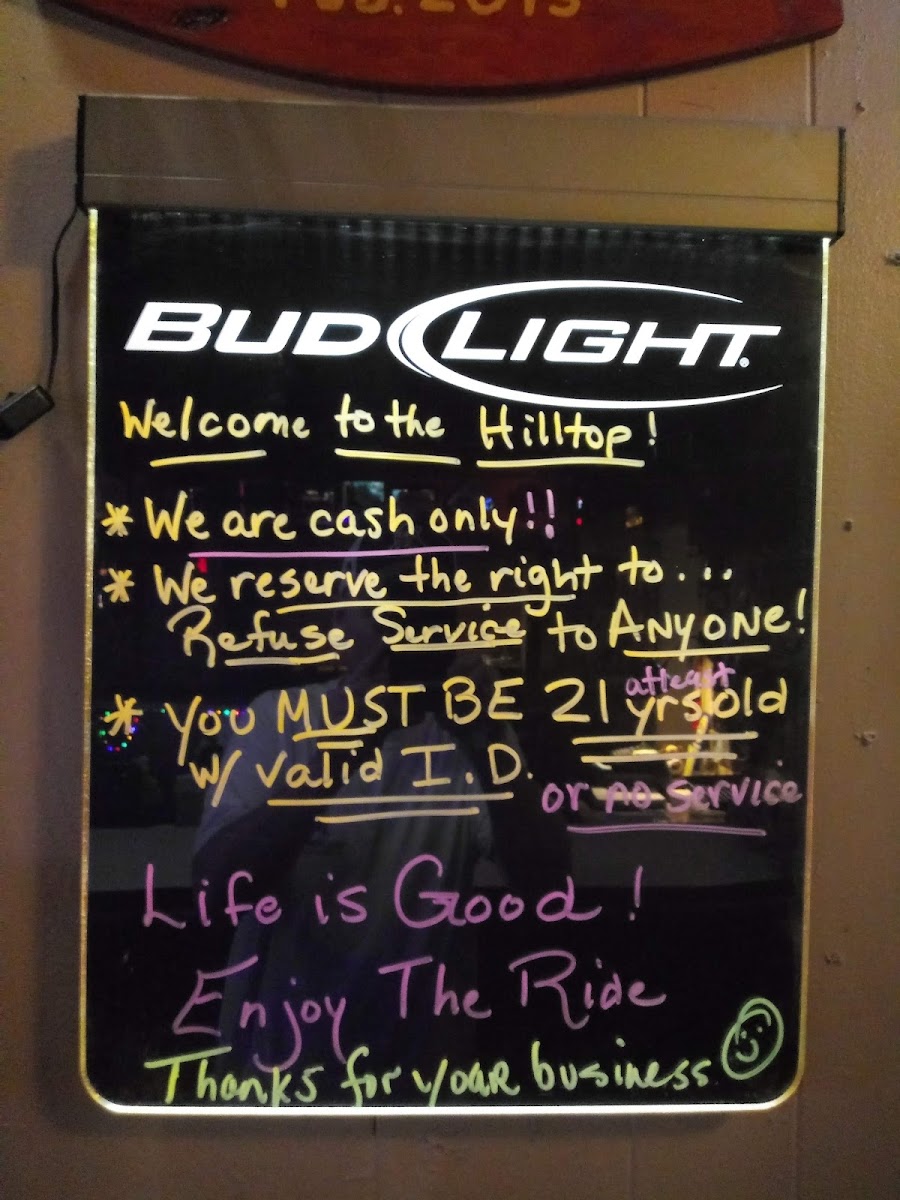 2013
BUD LIGHT
Welcome to the Hilltop!
* We are cash only!!
* We reserve the right to...
Refuse Service to ANYONE!
atleast
* you MUST BE 21 yrs old
w/ valid I.D.
or no service
Life is Good!
Enjoy The Ride
Thanks for your business